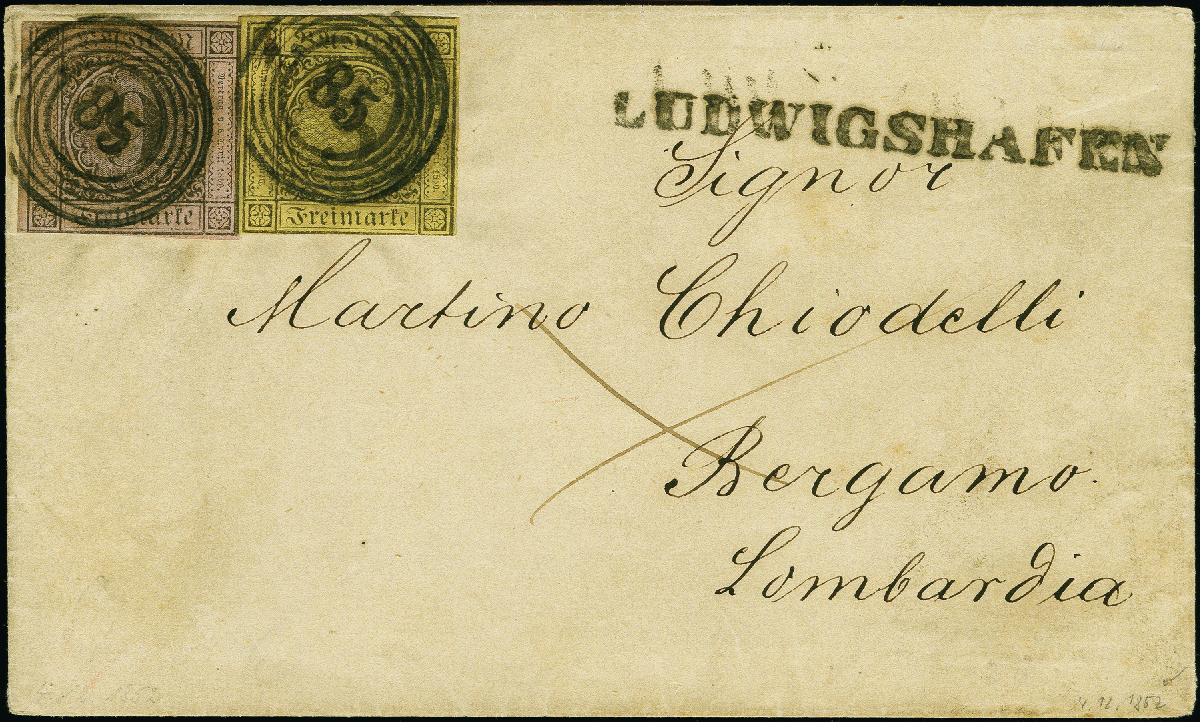 85
Freimarke
85
3
Freimarke
LUDWIGSHAFEN
Signor
Martino Chiodelli
Bergamo.
Lombardia
4.12.1852